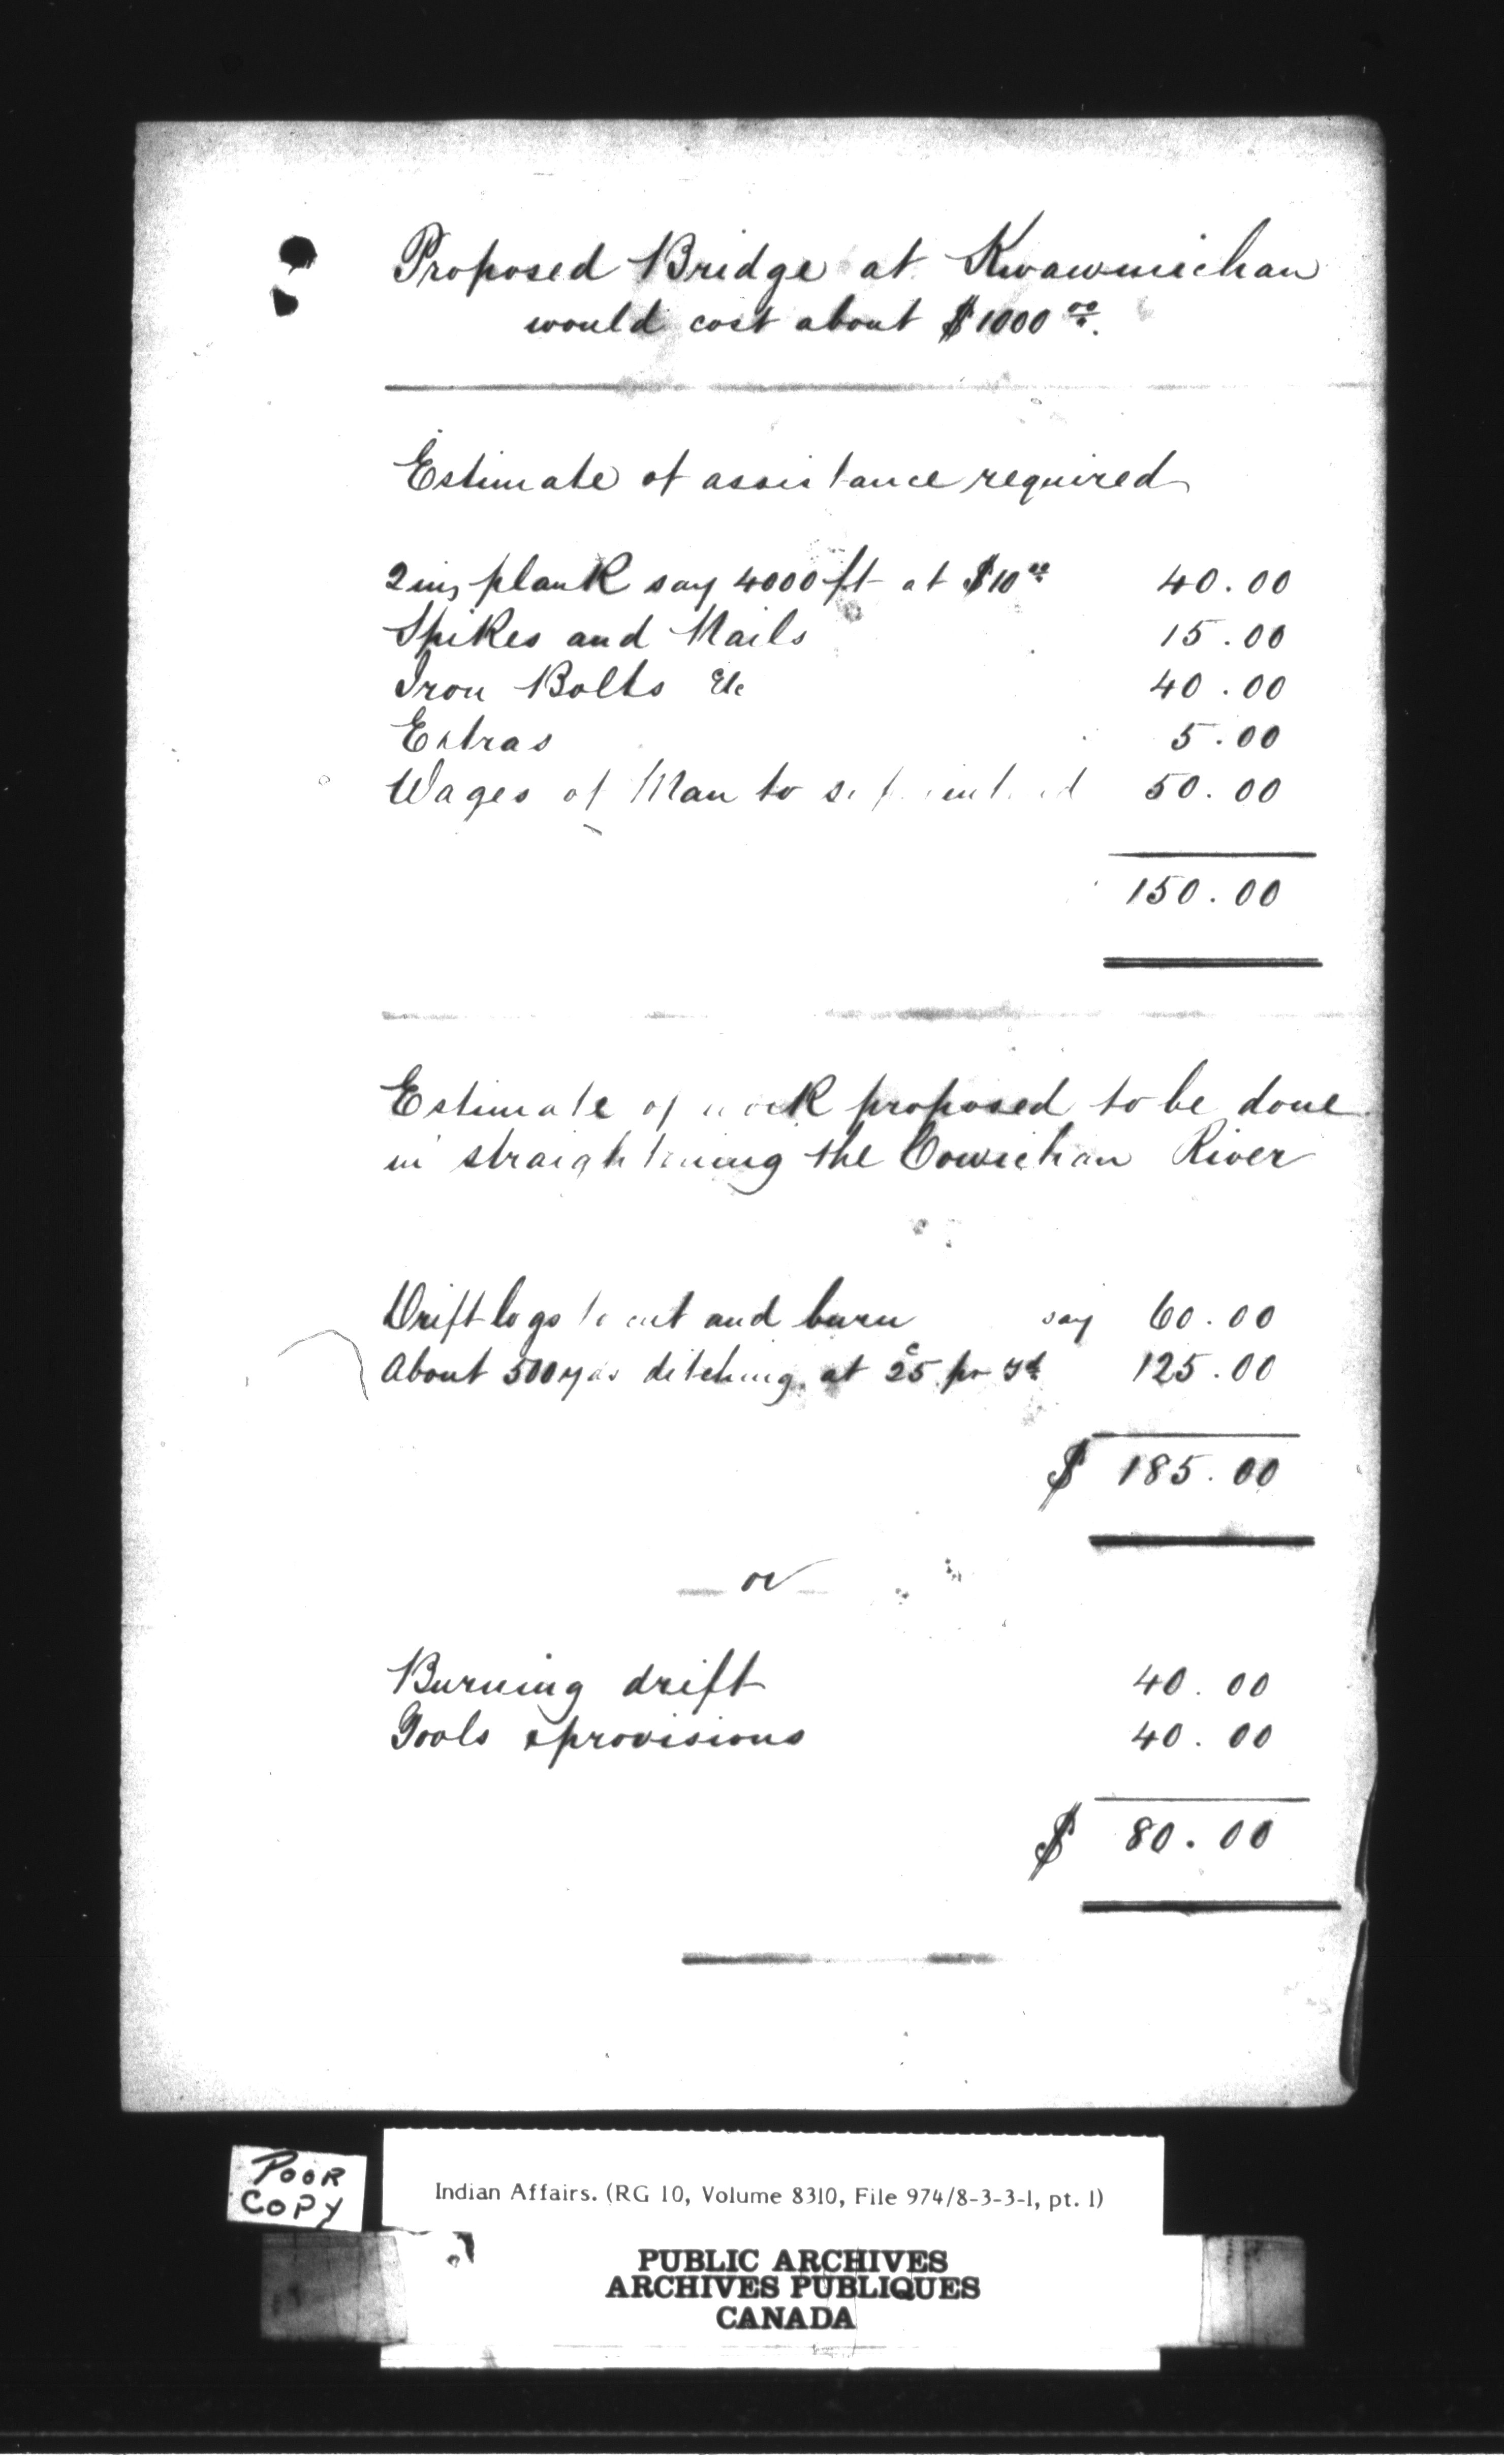 Proposed Bridge at Kwawmichan
would cost about $1000 00.
Estimate of assistance required
2 ins plank say 4000 ft at $10 00 40.00
Spikes and Nails 15.00
Iron Bolts Etc 40.00
Extras 5.00
Wages of Man to 50.00
150.00
Estimate of work proposed to be done
in straightening the Cowichan River
Drift logs to cut and burn say 60.00
About 500 yds ditching at 25c pr yd 125.00
$ 185.00
or
Burning drift 40.00
Tools & provisions 40.00
$ 80.00
POOR
COPY
Indian Affairs. (RG 10, Volume 8310, File 974/8-3-3-1, pt. 1)
PUBLIC ARCHIVES
ARCHIVES PUBLIQUES
CANADA